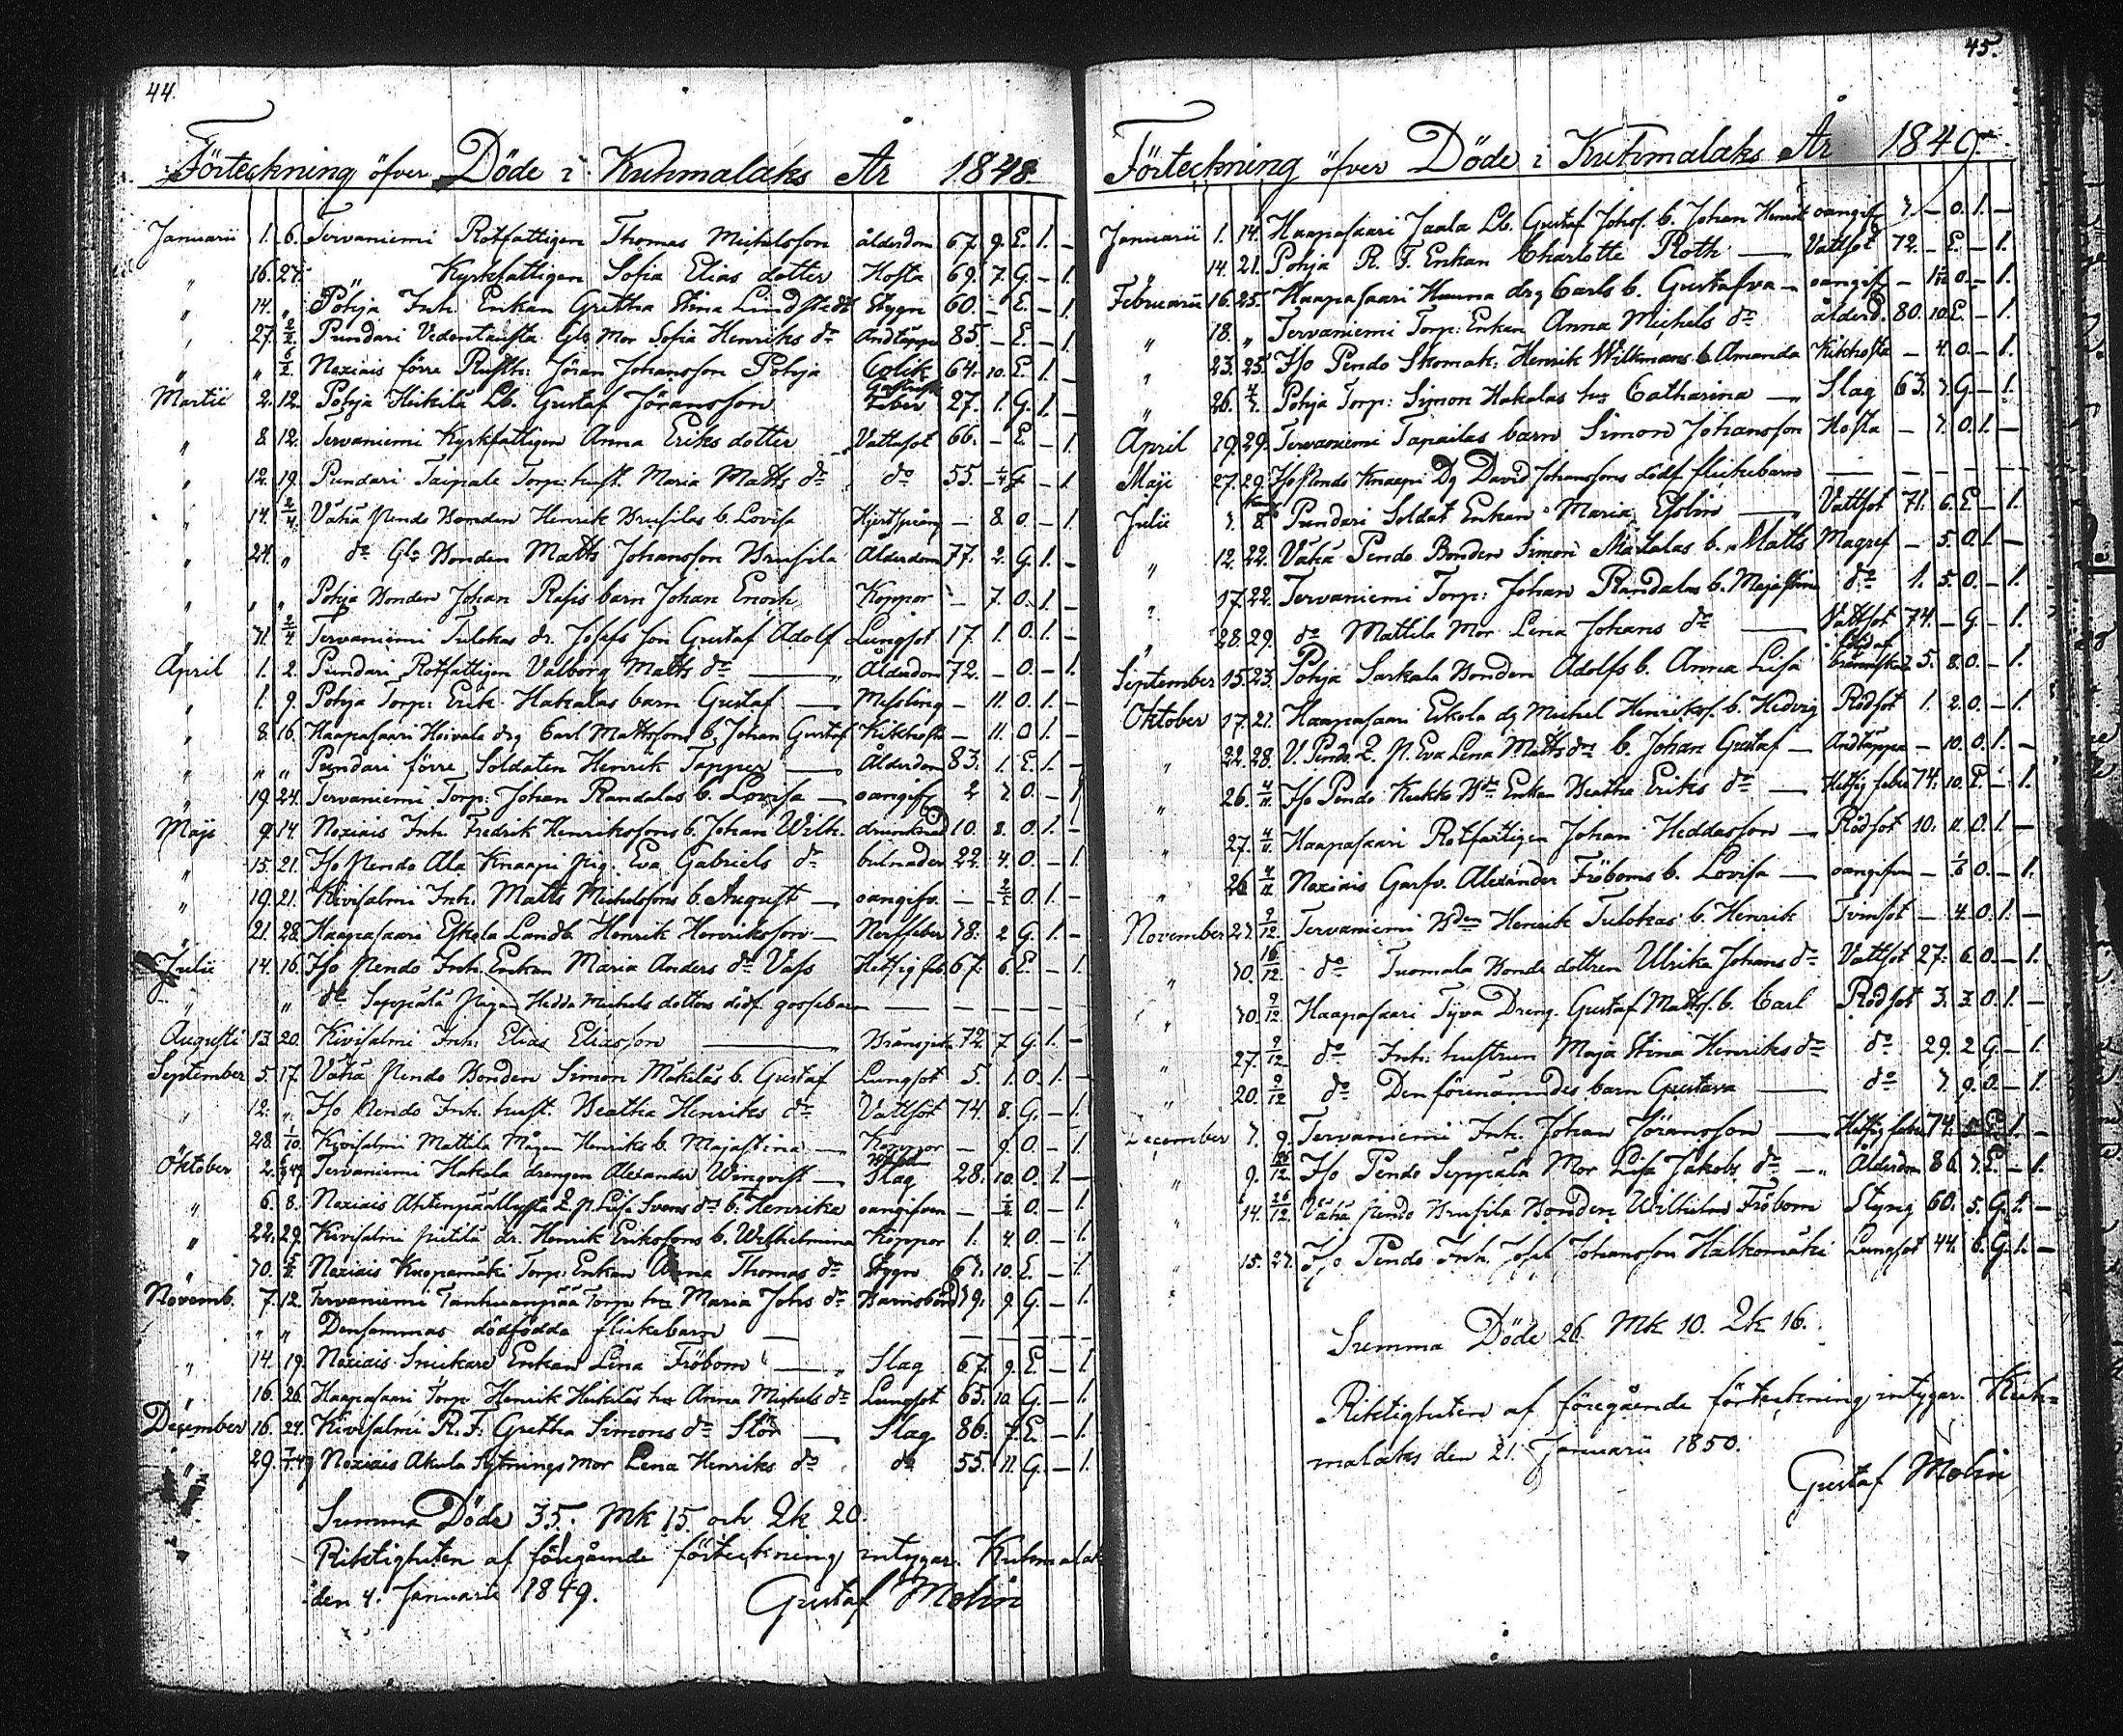 44.
Förteckning öfver Döde i Kuhmalaks År 1848.
Januarii 1. 6. Tervaniemi Rotfattigen Thomas Michelsson ålderdom 67. 9. E. 1. –
" 16. 27. " Kyrkfattigen Sofia Elias dotter Hosta 69. 7. G. – 1.
" 14. " Pohja Inh. Enkan Gretha Stina Lindstedt Stygn 60. – E. – 1.
" 27. 2/2. Pundari Vedentausta Gla Mor Sofia Henriks dr Andtäppa 85. – E. – 1.
" " 6/2. Noxiais förre Rusth: Jöran Johansson Pohja Colik 64. 10. E. 1. –
Martii 2. 12. Pohja Heikilä Lb. Gustaf Jöransson Feber 27. 1. G. 1. –
" 8. 12. Tervaniemi Kyrkfattigen Anna Eriks dotter Vattusot 66. – E. – 1.
" 12. 19. Pundari Taipale Torp: hust. Maria Matts dr do 55. 1/4 G. – 1.
" 17. 2/4. Vähä Pendo Bonden Henrik Brusilas b. Lovisa Hjertsprång – 8. 0. – 1.
" 24. " do Gla Bonden Matts Johansson Brusila Ålderdom 77. 2. G. 1. –
" " " Pohja Bonden Johan Rasis barn Johan Enoch Koppor – 7. 0. 1. –
" 31. 2/4 Tervaniemi Tulokas dr. Josefs son Gustaf Adolf Lungsot 17. 1. 0. 1. –
April 1. 2. Pundari Rotfattigen Valborg Matts dr — " Ålderdom 72. – 0. – 1.
" 1. 9. Pohja Torp: Erik Hakalas barn Gustaf — Messling – 11. 0. 1. –
" 8. 16. Haapasaari Hoivala drg Carl Mattssons b. Johan Gustaf Kikhosta – 11. 0. 1. –
" " " Pundari förre Soldaten Henrik Tapper — Ålderdom 83. 1. E. 1. –
" 19. 24. Tervaniemi Torp: Johan Randalas b. Lovisa — oangifv. 2 7. 0. – 1
Maji 9. 14. Noxiais Inh. Fredrik Henrikssons b. Johan Wilh. drunknad 10. 8. 0. 1. –
" 15. 21. Iso Pendo Ala Knaapi Pig. Eva Gabriels dr bulnader 22. 4. 0. – 1.
" 19. 21. Kivisalmi Inh. Matts Michelssons b. August — oangifv. – – 2/2 0. 1. –
" 21. 28. Haapasaari Eskola Landb Henrik Henriksson — Nerffeber 78. 2 G. 1. –
Julii 14. 16. Iso Pendo Inh. Enkan Maria Anders dr Vass Hetsig feb. 67. 6. E. – 1.
" " do Seppälä Pigan Hedda Michels dotters dödf. gossebarn — – – – –
Augusti 13. 20. Kivisalmi Inh: Elias Eliasson — 72. 7. G. 1. –
September 5. 17. Vähä Pendo Bonden Simon Mäkiläs b. Gustaf Lungsot 5. 1. 0. 1. –
" 12. " Iso Pendo Inh. hust. Beatha Henriks dr Vattsot 74. 8. G. – 1.
" 28. 1/10. Kivisalmi Mattila Mågen Henriks b. Majastina — Koppor – 9. 0. – 1.
Oktober 2. Tervaniemi Hakala drengen Alexander Winqvist — Slag 28. 10. 0. 1. –
" 6. 8. Noxiais Ahtenpäällystä Q. p. Lisa Svens dr b. Henrika oangifven – 2/2 0. – 1.
" 22. 29. Kivisalmi Putilä dr. Henrik Erikssons b. Wilhelmina Koppor 1. 4. 0. – 1.
" 30. 5/11. Noxiais Knopamäki Torp: Enkan Anna Thomas dr Stygn 67. 10. E. – 1.
Novemb. 7. 12. Tervaniemi Tanhuanpää Torp: hu Maria Johs dr Barnsbörd 39. 9. G. – 1.
" " Densammas dödfödda flickebarn — – – – –
" 14. 19. Noxiais Snickare Enkan Lena Fröbom — Slag 67. 9. E. – 1.
" 16. 26. Haapasaari Torp Henrik Heikiläs hu Anna Michels dr Lungsot 63. 10. G. – 1.
December 16. 24. Kivisalmi R. F. Gretha Simons dr Stör — Slag 86. 7. E. – 1.
" 29. 7/1 49 Noxiais Akula Sytnings Mor Lena Henriks dr do 55. 11. G. – 1.
Summa Döde 35. Mk 15. och Qk 20.
Riktigheten af föregående förteckning intygar. Kuhmalak
den 4. Januarii 1849. Gustaf Molin
45.
Förteckning öfver Döde i Kuhmalaks År 1849
Januarii 1. 14. Haapasaari Jaala Lb. Gustaf Johss. b. Johan Henrik oangifv 7. – 0. 1. –
14. 21. Pohja R. F. Enkan Charlotte Roth — Vattsot 72. – E. – 1.
Februarii 16. 25. Haapasaari Hauna drg Carls b. Gustafva – oangifv – 1/12 0. – 1.
" 18. " Tervaniemi Torp: Enkan Anna Michels dr ålderd. 80. 10. E. – 1.
" 23. 25. Iso Pendo Skomak: Henrik Wilkmans b. Amanda Kikhosta – 4. 0. – 1.
" 26. Pohja Torp: Simon Hakalas hu Catharina — Slag 63. 7. G – 1.
April 19. 29. Tervaniemi Tapailas barn Simon Johansson Hosta – 7. 0. 1. –
Maji 27. 29. Iso Pendo Knaapi Dg David Johanssons dödf flickebarn — – – – –
Julii 7. 8. Pundari Soldat Enkan Maria Esslin — Vattsot 71. 6. E – 1.
" 12. 22. Vähä Pendo Bonden Simon Mäkilas b. Matts Magref – 5. 0. 1. –
" 17. 22. Tervaniemi Torp: Johan Randalas b. Majastina do 1. 5. 0. – 1.
" 28. 29. do Mattila Mor Lena Johans dr — Vattsot 74. – G – 1.
September 15. 23. Pohja Sarkala Bonden Adolfs b. Anna Lisa 5. 8. 0. – 1.
Oktober 17. 21. Haapasaari Eskola dg Michel Henrikss. b. Hedvig Rödsot 1. 2. 0. – 1.
" 22. 28. V. Pendo Q. P. Eva Lena Matts dr b. Johan Gustaf – Andtäppa – 10. 0. 1. –
" 26. 4/11. Iso Pendo Kukko Bde Enkan Beatha Eriks dr — Hetsig feber 74. 10. E. – 1.
" 27. 4/11. Haapasaari Rotfattigen Johan Heddasson — Rödsot 10. 11. 0. 1. –
" 26 4/11 Noxiais Garfv. Alexander Fröboms b. Lovisa — oangifven – 1/6 0. – 1.
November 27. 9/12. Tervaniemi Bden Henrik Tulokas b. Henrik Tvinsot – 4. 0. 1. –
" 30. 16/12 do Tuomala Bonde dottren Ulrika Johans dr Vattsot 27. 6. 0. – 1.
" 30. 9/12 Haapasaari Tyva Dreng. Gustaf Mattss. b. Carl Rödsot 3. 3. 0. 1. –
" 27. 9/12 do Inh: hustrun Maja Stina Henriks dr do 29. 2 G. – 1.
" 20. 9/12 do Den förenämndes barn Gustava — do 7. 9. 0. – 1.
December 7. 9. Tervaniemi Inh. Johan Jöransson — Hetsig feber 74. 5. E. 1. –
" 9. 16/12. Iso Pendo Seppälä Mor Lisa Jakobs dr — Ålderdom 86. 7. E. – 1.
" 14. 26/12. Vähä Pendo Brusila Bonden Wilhelm Fröbom Styng 60. 5. G. 1. –
" 15. 27. Iso Pendo Inh. Josef Johansson Halkomäki Lungsot 44. 6. G. 1. –
Summa Döde 26. Mk 10. Qk 16.
Riktigheten af föregående förteckning intygar. Kuh-
malaks den 21. Januarii 1850.
Gustaf Molin